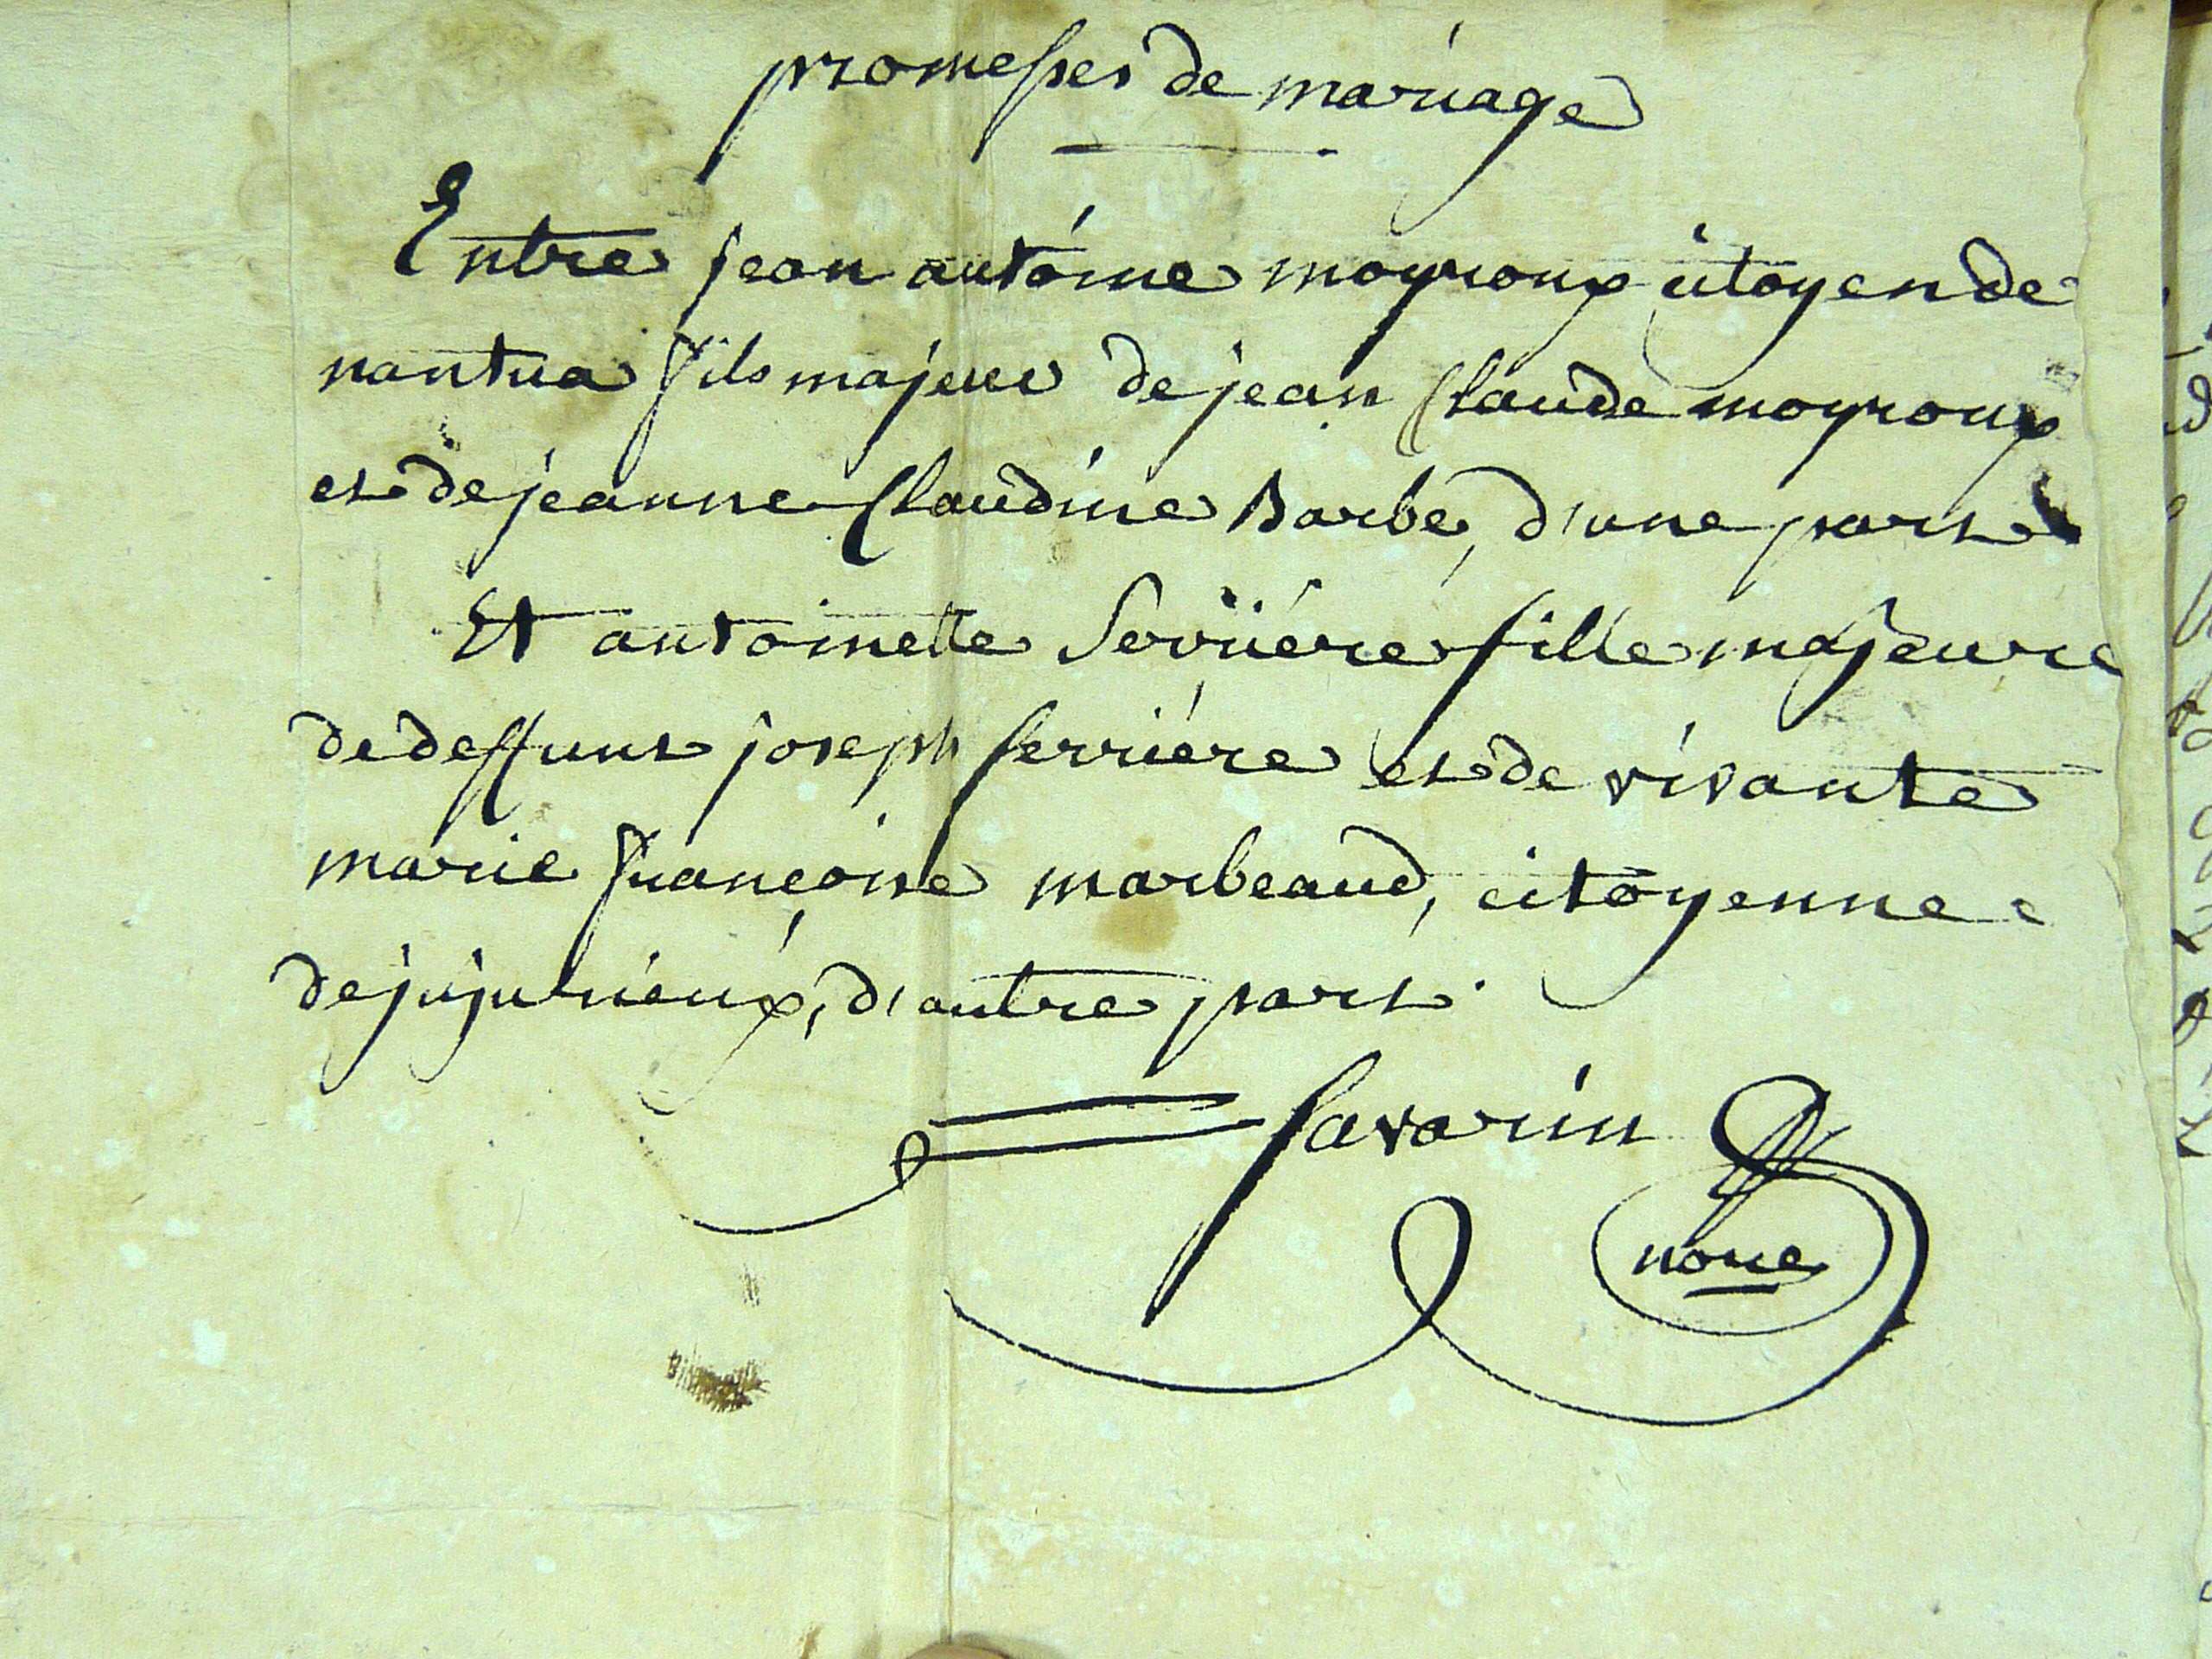 promesses de mariage
Entre jean antoine moyroux citoyen de
nantua fils majeur de jean Claude moyroux
et de jeanne Claudine Barbe, d'une part
Et antoinette Serrière fille majeure
de deffunt joseph serrière et de vivante
marie françoise marbeaud, citoyenne
de jujurieux, d'autre part.
Savarin
nore